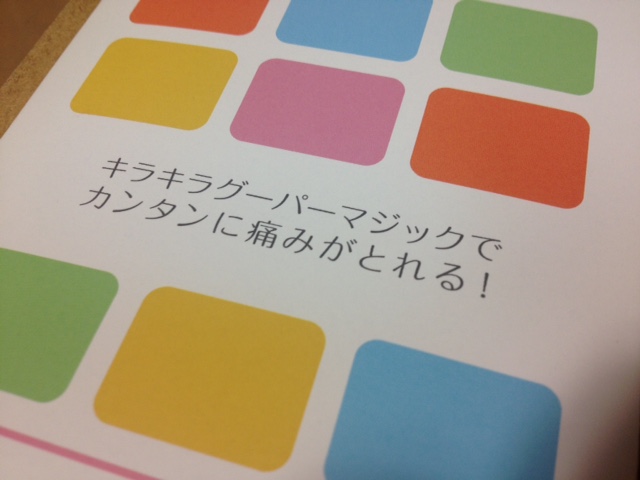 キラキラグーパーマジックで
カンタンに痛みがとれる！